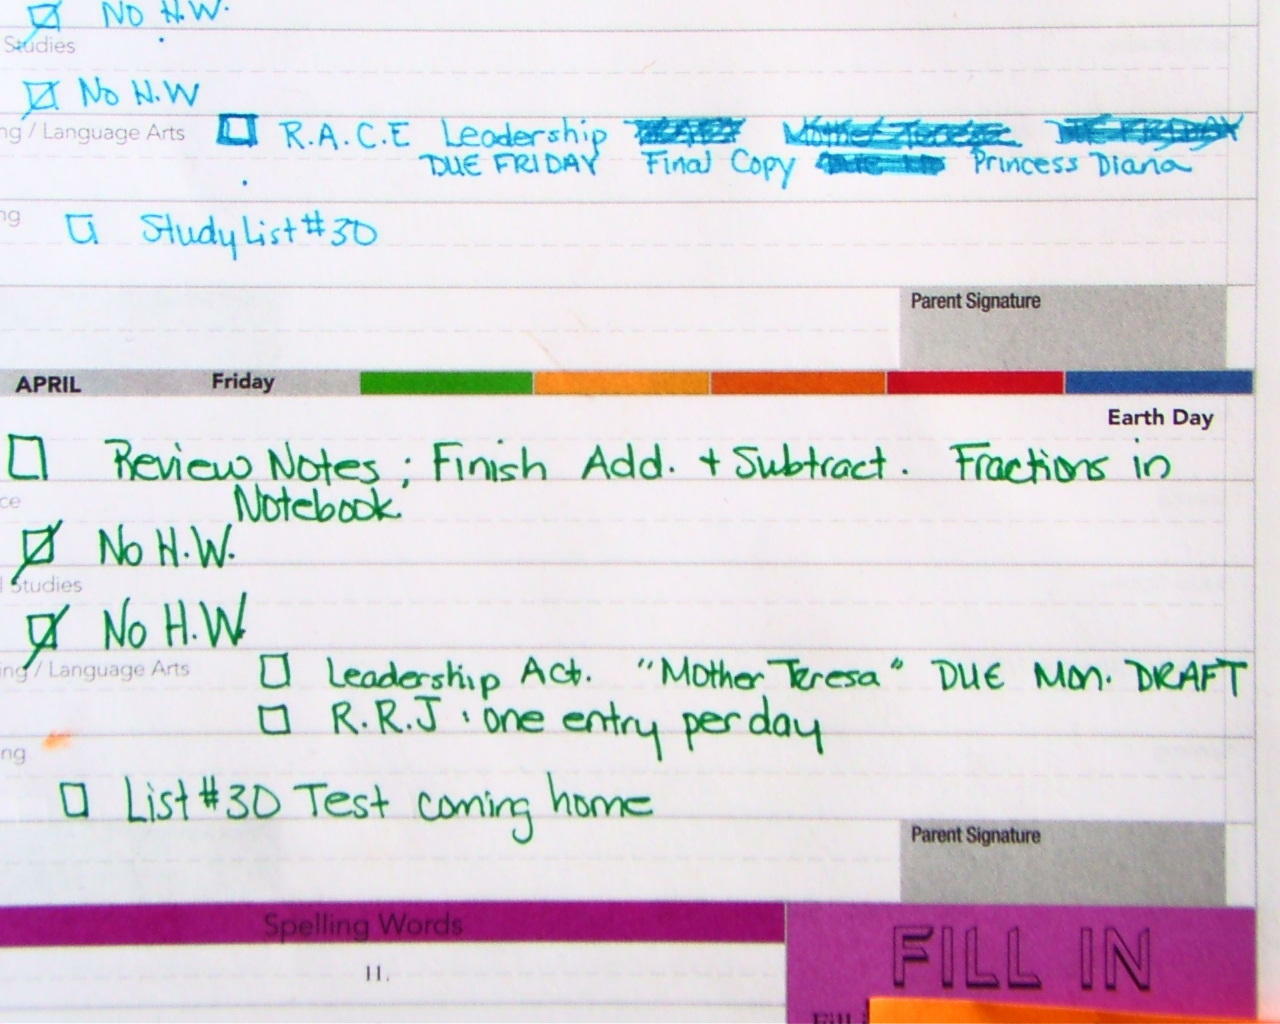 No H.W.
Studies
No H.W
ng / Language Arts
R.A.C.E Leadership DRAFT Mother Teresa DUE FRIDAY
DUE FRIDAY Final Copy Princess Diana
ng
Study List #30
Parent Signature
APRIL Friday
Earth Day
Review Notes ; Finish Add. + Subtract. Fractions in
Notebook.
ce
No H.W.
l Studies
No H.W.
ing / Language Arts
Leadership Act. "Mother Teresa" DUE Mon. DRAFT
R.R.J : one entry per day
ng
List #30 Test coming home
Parent Signature
Spelling Words
FILL IN
11.
Fill i